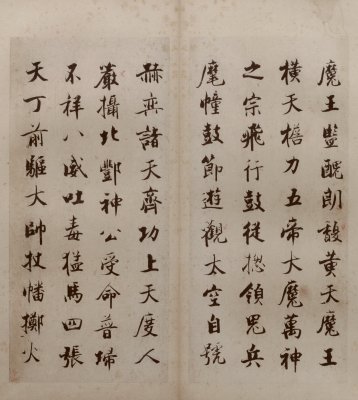 魔王監醜朗馥黃天魔王
橫天檐力五帝大魔萬神
之宗飛行鼓從摠領鬼兵
麾幢鼓節遊觀太空自號
赫奕諸天齊功上天度人
嚴攝北酆神公受命普掃
不祥八威吐毒猛馬四張
天丁前驅大帥仗幡擲火